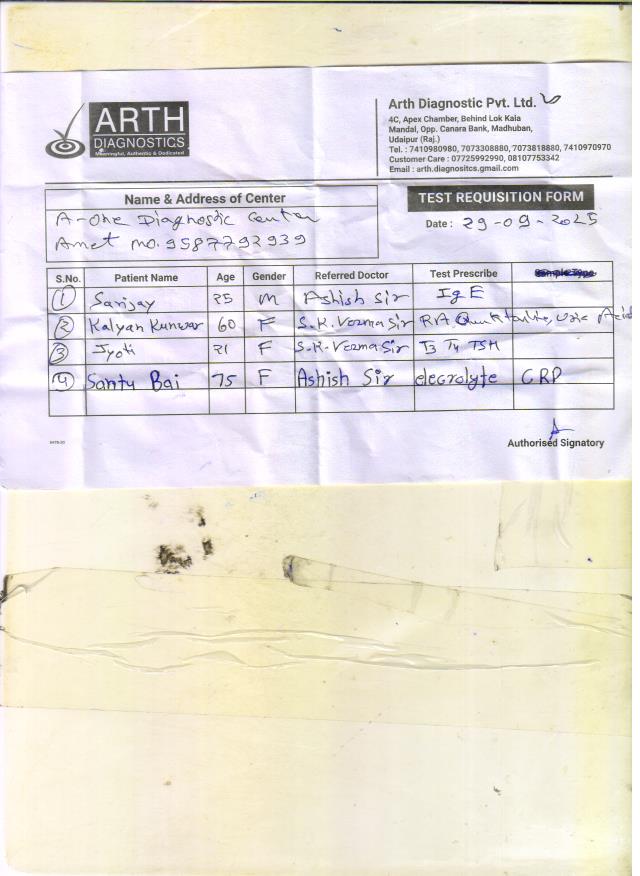 ARTH
DIAGNOSTICS
Meaningful, Authentic & Dedicated
Arth Diagnostic Pvt. Ltd.
4C, Apex Chamber, Behind Lok Kala
Mandal, Opp. Canara Bank, Madhuban,
Udaipur (Raj.)
Tel. : 7410980980, 7073308880, 7073818880, 7410970970
Customer Care : 07725992990, 08107753342
Email : arth.diagnositcs.gmail.com
Name & Address of Center
A-One Diagnostic Center
Amet mo. 9587792939
TEST REQUISITION FORM
Date : 29-09-2025
S.No. Patient Name Age Gender Referred Doctor Test Prescribe Sample Type
1 Sanjay 25 M Ashish Sir IgE
2 Kalyan Kunwar 60 F S.K. Verma Sir RA Uric Acid
3 Jyoti 21 F S.K. Verma Sir T3 T4 TSH
4 Santu Bai 75 F Ashish Sir elecrolyte CRP
Authorised Signatory